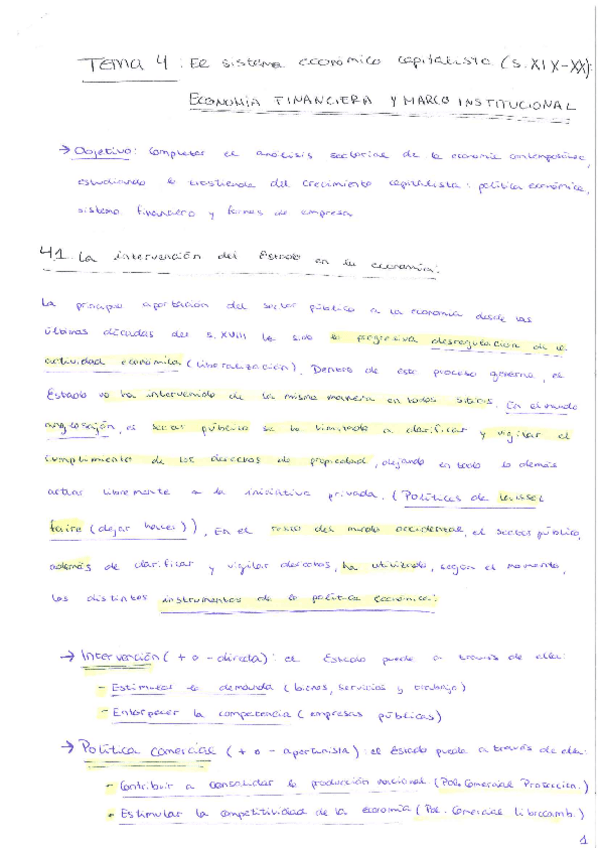 Tema 4: El sistema económico capitalista (s. XIX-XX):
ECONOMÍA FINANCIERA Y MARCO INSTITUCIONAL
→ Objetivo: Completar el análisis sectorial de la economía contemporánea,
estudiando la trastienda del crecimiento capitalista: política económica,
sistema financiero y formas de empresa
4.1. La intervención del Estado en la economía:
La principal aportación del sector público a la economía desde las
últimas décadas del s. XVIII ha sido la progresiva desregulación de la
actividad económica (liberalización). Dentro de este proceso general, el
Estado no ha intervenido de la misma manera en todos sitios. En el mundo
anglosajón, el sector público se ha limitado a clarificar y vigilar el
cumplimiento de los derechos de propiedad, dejando en todo lo demás
actuar libremente a la iniciativa privada. (Políticas de laissez
faire (dejar hacer)), En el resto del mundo occidental, el sector público,
además de clarificar y vigilar derechos, ha utilizado, según el momento,
los distintos instrumentos de la política económica:
→ Intervención (+ o - directa): el Estado puede a través de ella:
- Estimular la demanda (bienes, servicios y trabajo)
- Entorpecer la competencia (empresas públicas)
→ Política comercial (+ o - aperturista): el Estado puede a través de ella:
- Contribuir a consolidar la producción nacional (Pol. Comercial Proteccion.)
- Estimular la competitividad de la economía (Pol. Comercial librecamb.)
1